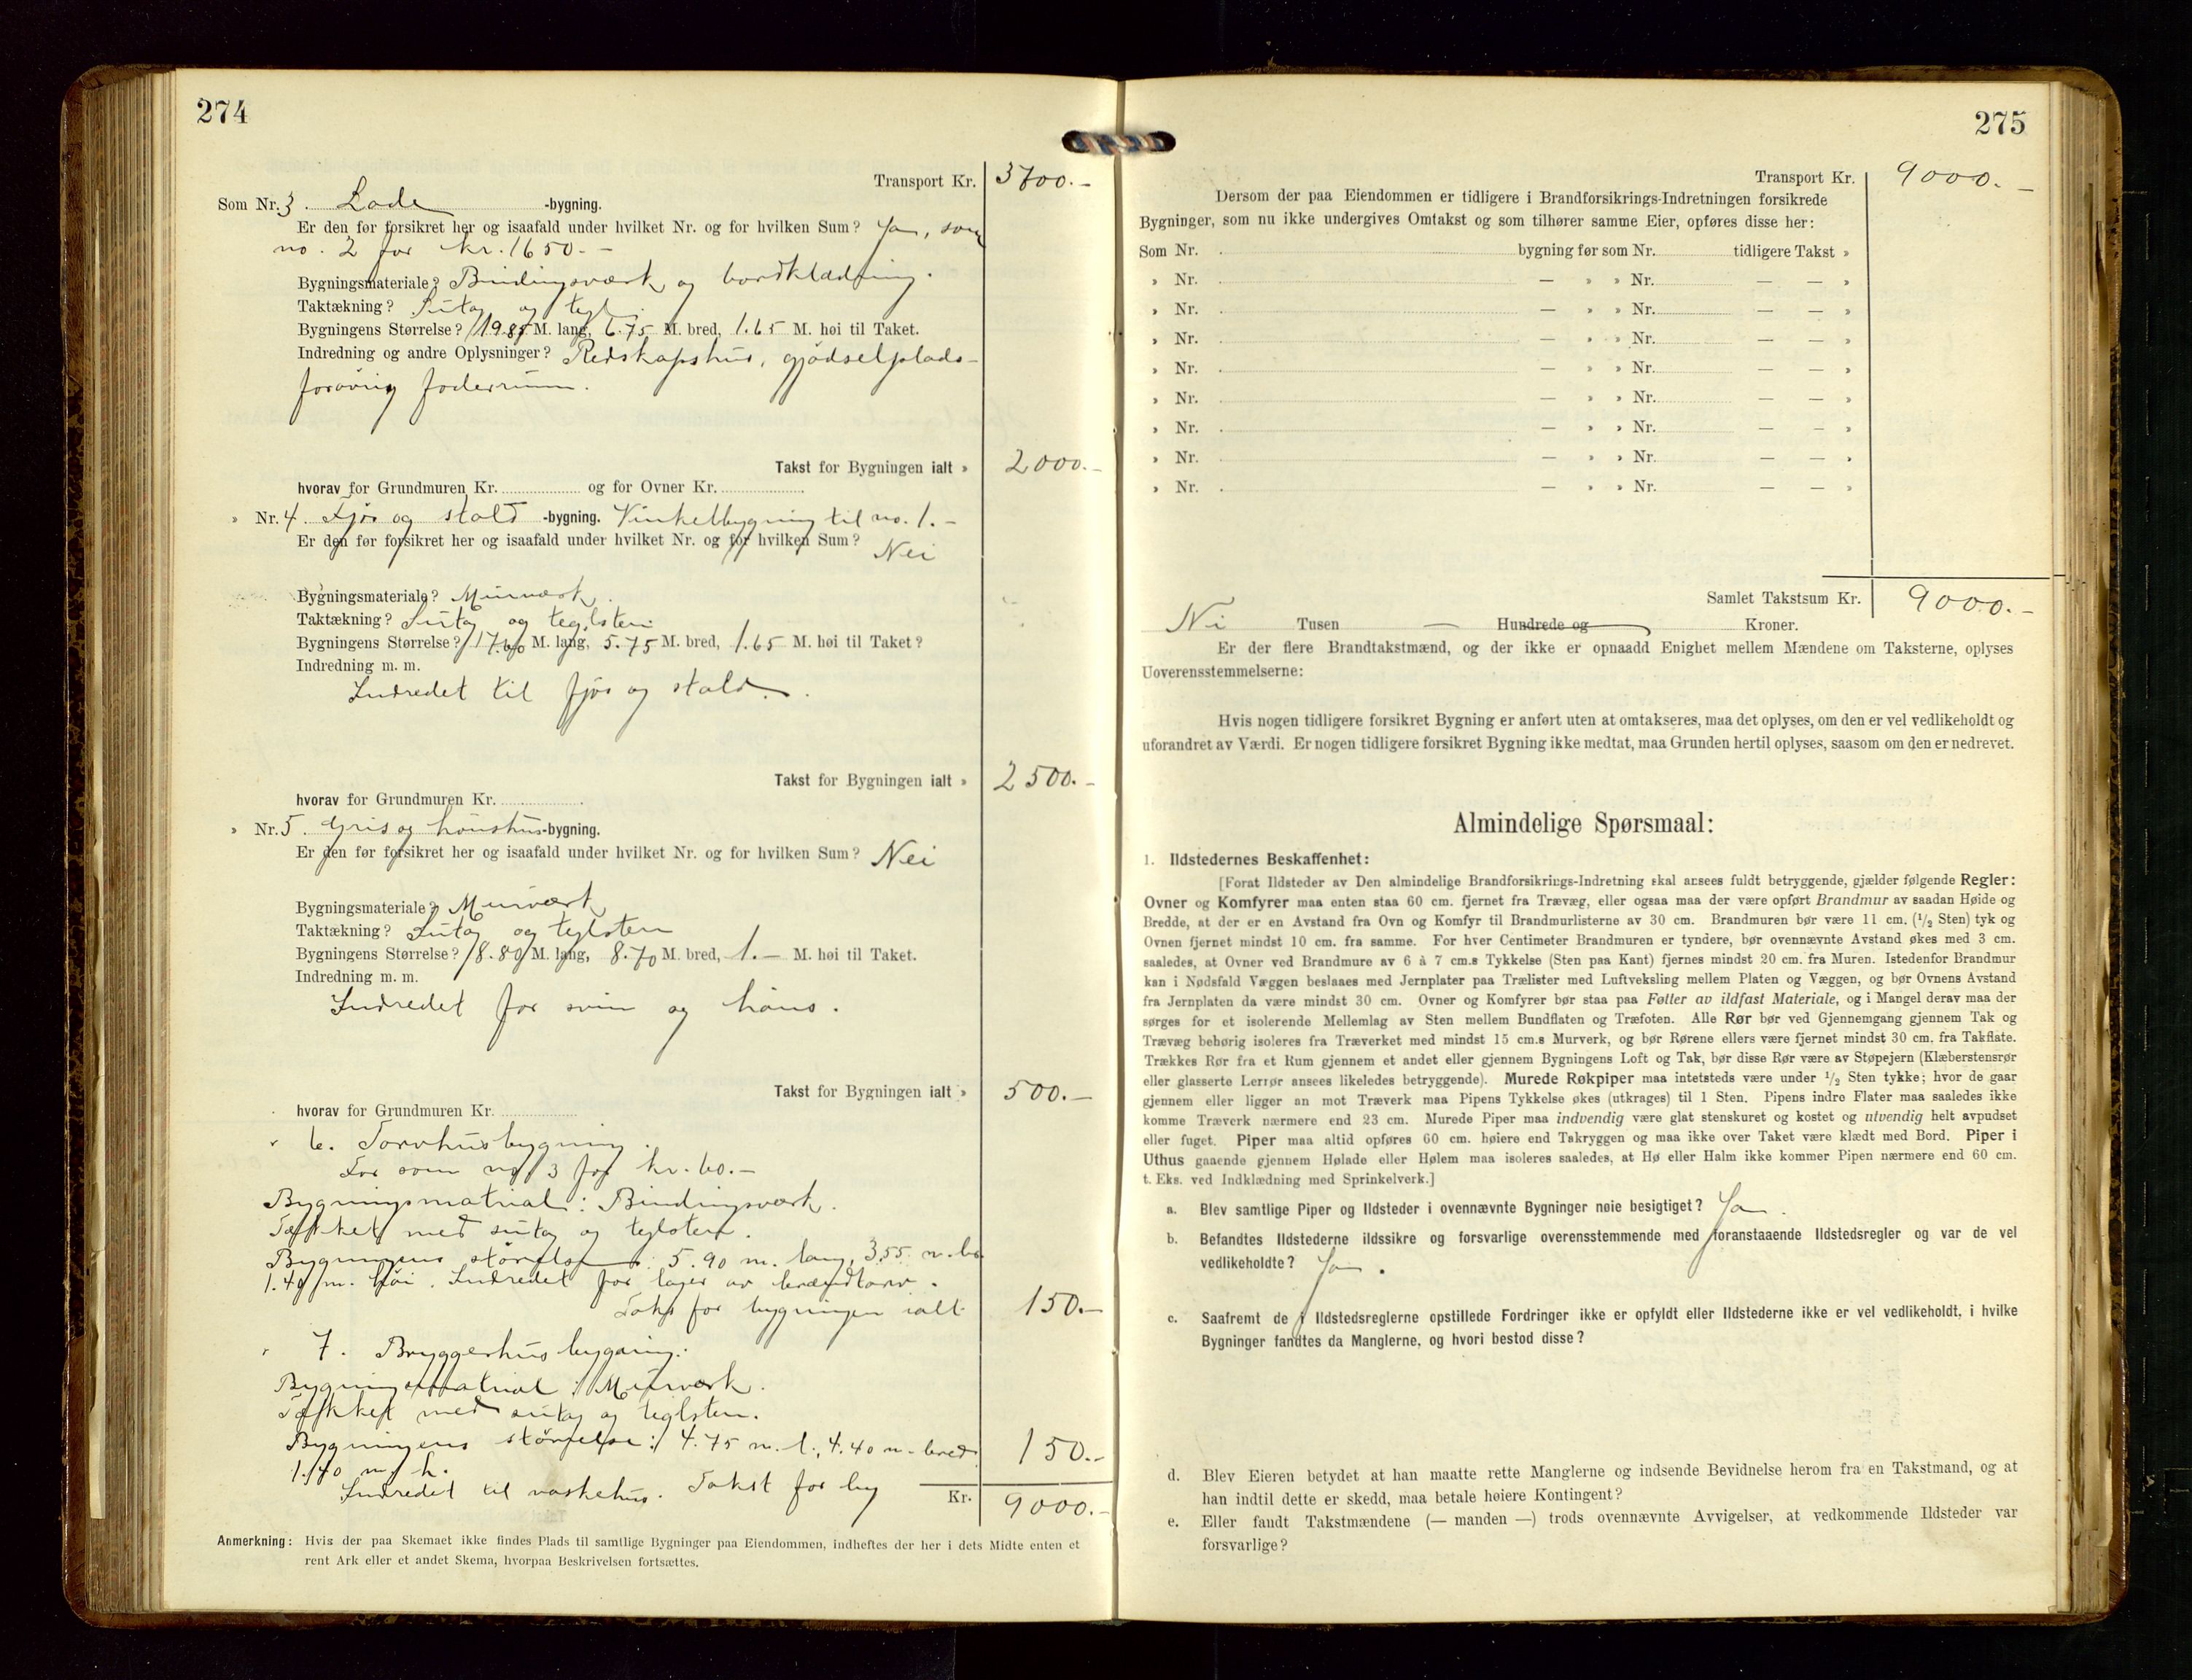 274
Transport Kr. 3700.-
Som Nr. 3. Lade -bygning.
Er den før forsikret her og isaafald under hvilket Nr. og for hvilken Sum? Ja, som
no. 2 for kr. 1650.-
Bygningsmateriale? Bindingsværk og bordklædning.
Taktækning? Sutag og tegl
Bygningens Størrelse? 19.85 M. lang, 6.75 M. bred, 1.65 M. høi til Taket.
Indredning og andre Oplysninger? Redskapshus, gjødselplads-
forøvrig foderrum.
Takst for Bygningen ialt » 2000.-
hvorav for Grundmuren Kr. og for Ovner Kr.
» Nr. 4. Fjøs og stald -bygning. Vinkelbygning til no. 1.-
Er den før forsikret her og isaafald under hvilket Nr. og for hvilken Sum? Nei
Bygningsmateriale? Murværk.
Taktækning? Sutag og teglsten
Bygningens Størrelse? 17.60 M. lang, 5.75 M. bred, 1.65 M. høi til Taket?
Indredning m. m.
Indredet til fjøs og stald.
Takst for Bygningen ialt » 2500.-
hvorav for Grundmuren Kr.
» Nr. 5. Gris og hønshus -bygning.
Er den før forsikret her og isaafald under hvilket Nr. og for hvilken Sum? Nei
Bygningsmateriale? Murværk
Taktækning? Sutag og teglsten
Bygningens Størrelse? 8.80 M. lang, 8.70 M. bred, 1.- M. høi til Taket.
Indredning m. m.
Indredet for svin og høns.
Takst for Bygningen ialt » 500.-
hvorav for Grundmuren Kr.
" 6. Torvhusbygning.
Før som no 3 for kr. 60.-
Bygningsmatrial: Bindingsværk.
Tækket med sutag og teglsten.
Bygningens størrelse: 5.90 m. lang, 3.55 m. br
1.40 m. høi. Indredet for lager av brændtorv.
Takst for bygningen ialt 150.-
" 7. Bryggerhusbygning.
Bygningsmatrial: Murværk.
Tækket med sutag og teglsten.
Bygningens størrelse: 4.75 m. l., 4.40 m. bred 150.-
1.40 m. h.
Indredet til vaskehus. Takst for byg Kr. 9000.-
Anmerkning: Hvis der paa Skemaet ikke findes Plads til samtlige Bygninger paa Eiendommen, indheftes der her i dets Midte enten et
rent Ark eller et andet Skema, hvorpaa Beskrivelsen fortsættes.
275
Transport Kr. 9000.-
Dersom der paa Eiendommen er tidligere i Brandforsikrings-Indretningen forsikrede
Bygninger, som nu ikke undergives Omtakst og som tilhører samme Eier, opføres disse her:
Som Nr. bygning før som Nr. tidligere Takst »
» Nr. — » » Nr. — — »
» Nr. — » » Nr. — — »
» Nr. — » » Nr. — — »
» Nr. — » » Nr. — — »
» Nr. — » » Nr. — — »
» Nr. — » » Nr. — — »
» Nr. — » » Nr. — — »
» Nr. — » » Nr. — — »
Samlet Takstsum Kr. 9000.-
Ni Tusen — Hundrede og Kroner.
Er der flere Brandtakstmænd, og der ikke er opnaadd Enighet mellem Mændene om Taksterne, oplyses
Uoverensstemmelserne:
Hvis nogen tidligere forsikret Bygning er anført uten at omtakseres, maa det oplyses, om den er vel vedlikeholdt og
uforandret av Værdi. Er nogen tidligere forsikret Bygning ikke medtat, maa Grunden hertil oplyses, saasom om den er nedrevet.
Almindelige Spørsmaal:
1. Ildstedernes Beskaffenhet:
[Forat Ildsteder av Den almindelige Brandforsikrings-Indretning skal ansees fuldt betryggende, gjælder følgende Regler:
Ovner og Komfyrer maa enten staa 60 cm. fjernet fra Trævæg, eller ogsaa maa der være opført Brandmur av saadan Høide og
Bredde, at der er en Avstand fra Ovn og Komfyr til Brandmurlisterne av 30 cm. Brandmuren bør være 11 cm. (1/2 Sten) tyk og
Ovnen fjernet mindst 10 cm. fra samme. For hver Centimeter Brandmuren er tyndere, bør ovennævnte Avstand økes med 3 cm.
saaledes, at Ovner ved Brandmure av 6 à 7 cm.s Tykkelse (Sten paa Kant) fjernes mindst 20 cm. fra Muren. Istedenfor Brandmur
kan i Nødsfald Væggen beslaaes med Jernplater paa Trælister med Luftveksling mellem Platen og Væggen, og bør Ovnens Avstand
fra Jernplaten da være mindst 30 cm. Ovner og Komfyrer bør staa paa Føtter av ildfast Materiale, og i Mangel derav maa der
sørges for et isolerende Mellemlag av Sten mellem Bundflaten og Træfoten. Alle Rør bør ved Gjennemgang gjennem Tak og
Trævæg behørig isoleres fra Træverket med mindst 15 cm.s Murverk, og bør Rørene ellers være fjernet mindst 30 cm. fra Takflate.
Trækkes Rør fra et Rum gjennem et andet eller gjennem Bygningens Loft og Tak, bør disse Rør være av Støpejern (Klæberstensrør
eller glasserte Lerrør ansees likeledes betryggende). Murede Røkpiper maa intetsteds være under 1/2 Sten tykke; hvor de gaar
gjennem eller ligger an mot Træverk maa Pipens Tykkelse økes (utkrages) til 1 Sten. Pipens indre Flater maa saaledes ikke
komme Træverk nærmere end 23 cm. Murede Piper maa indvendig være glat stenskuret og kostet og utvendig helt avpudset
eller fuget. Piper maa altid opføres 60 cm. høiere end Takryggen og maa ikke over Taket være klædt med Bord. Piper i
Uthus gaaende gjennem Hølade eller Hølem maa isoleres saaledes, at Hø eller Halm ikke kommer Pipen nærmere end 60 cm.
t. Eks. ved Indklædning med Sprinkelverk.]
a. Blev samtlige Piper og Ildsteder i ovennævnte Bygninger nøie besigtiget? Ja.
b. Befandtes Ildstederne ildssikre og forsvarlige overensstemmende med foranstaaende Ildstedsregler og var de vel
vedlikeholdte? Ja.
c. Saafremt de i Ildstedsreglerne opstillede Fordringer ikke er opfyldt eller Ildstederne ikke er vel vedlikeholdt, i hvilke
Bygninger fandtes da Manglerne, og hvori bestod disse?
d. Blev Eieren betydet at han maatte rette Manglerne og indsende Bevidnelse herom fra en Takstmand, og at
han indtil dette er skedd, maa betale høiere Kontingent?
e. Eller fandt Takstmændene (— manden —) trods ovennævnte Avvigelser, at vedkommende Ildsteder var
forsvarlige?